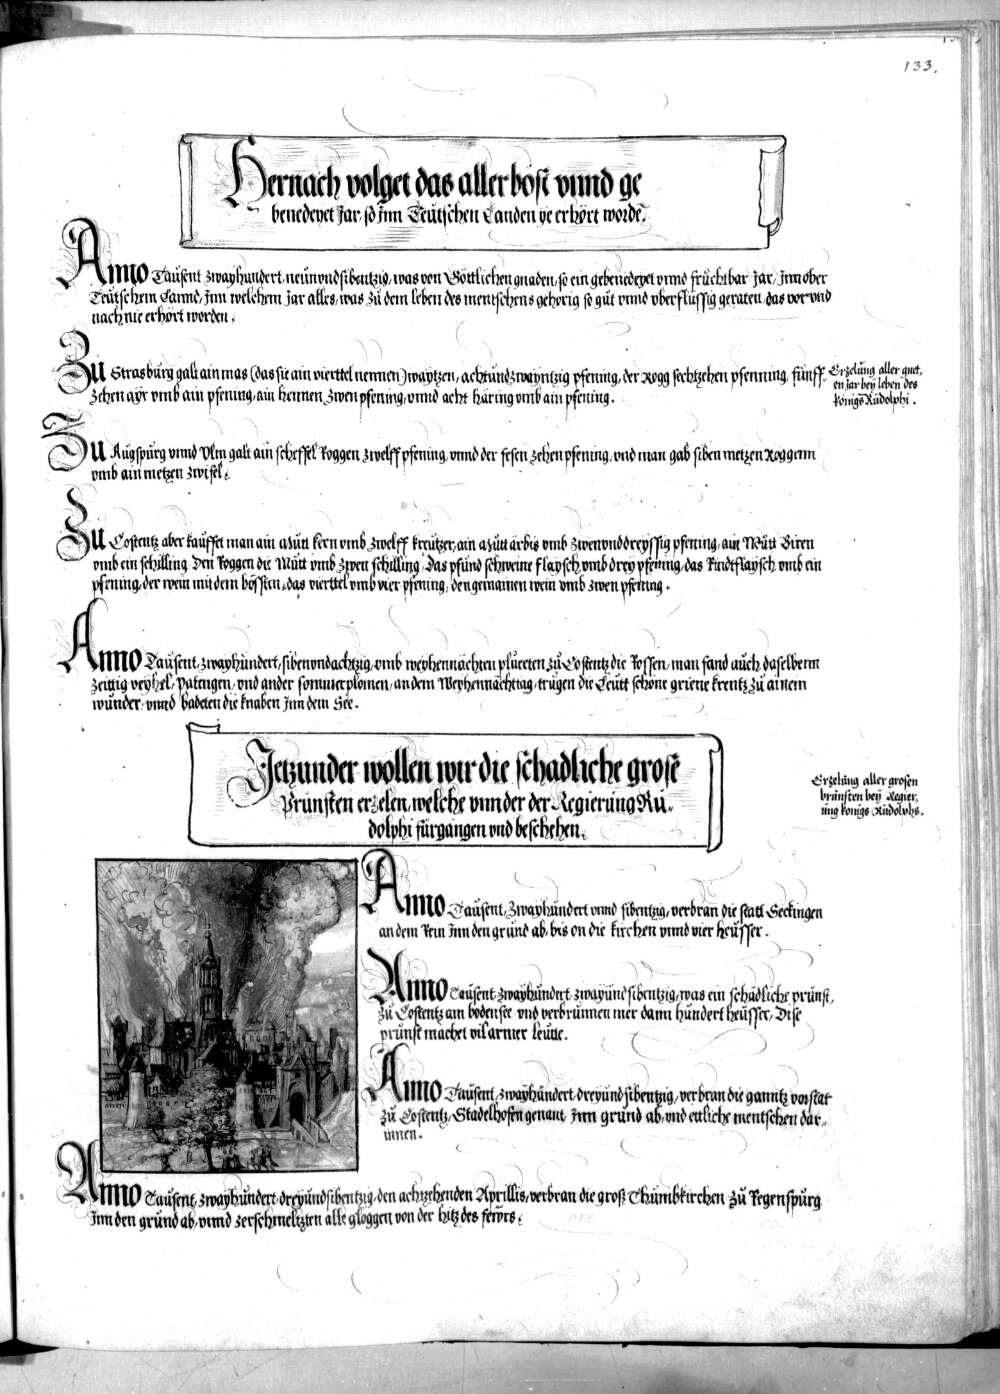 133.
Hernach volget das aller böst vnnd ge
benedeyet Jar, so Jnn Teütschen Landen ye erhört worde.
Anno Tausent zwayhundert, neünvndsibentzig, was von Göttlichen gnaden, so ein gebenedeyet vnnd früchtbar Jar, Jnn ober
Teütschem Lannd, Jnn welchem Jar alles, was zü dem leben des mentschens gehorig so güt vnnd vberflüssig geraten das vor vnd
nach nie erhört worden.
Zu Strasbürg galt ain mas (das sie ain vierttel nennen) waytzen, achtündzwayntzig pfening, der Rogg sechtzehen pfenning, fünff-
zehen ayr vmb ain pfening, ain hennen zwen pfening, vnnd acht häring vmb ain pfening.
Erzelüng aller guet,
en Jar bey leben des
königs Rüdolphi.
Zu Augspürg vnnd Vlm galt ain scheffel Roggen zwelff pfening, vnnd der fesen zehen pfening, vnd man gab siben metzen Roggenn
vmb ain metzen zwifel.
Zu Costentz aber kauffet man ain Mütt kern vmb zwelff kreützer, ain Mütt ärbis vmb zwenvnddreyssig pfening, ain Mütt Biren
vmb ein schilling. Den Roggen die Mütt vmb zwen schilling, Das pfünd schweine flaysch vmb drey pfening, das Rindtflaysch vmb ein
pfening, der wein mit dem bössten, das vierttel vmb vier pfening, den gemainen wein vmb zwen pfening.
Anno Tausent, zwayhündert, sibenvndachtzig, vmb weyhennächten plüeeten zü Costentz die Rossen, man fand auch daselbenn
zeittig veyhel, Patengen, vnd ander sommer plomen, an dem Weyhennächttag, trügen die Leütt schöne griene krentz zü ainem
wunder, vnnd badeten die knaben Jnn dem See.
Jetzunder wollen wir die schadliche grosse
Prünsten erzelen, welche vnnder der Regierüng Rü-
dolphi fürgangen vnd beschehen.
Erzelüng aller grosen
brünsten bey Regier,
üng königs Rüdolphs.
Anno Tausent, zwayhündert vnnd sibentzig, verbran die statt Seckingen
an dem Rein Jnn den gründ ab, bis on die kirchen vnnd vier heüsser.
Anno Tausent, zwayhündert, zwayündsibentzig, was ein schädliche prünst,
zü Costentz am bodensee vnd verbrünnen mer dann hündert heüsser, Dise
prünst machet vil armer leutte.
Anno Tausent, zwayhündert, dreyündsibentzig, verbran die ganntz vorstat
zü Costentz, Stadelhofen genant, Jnn gründ ab, vnd ettliche mentschen dar-
innen.
Anno Tausent, zwayhündert, dreyündsibentzig, den achtzehenden Aprillis, verbran die groß Thümbkirchen zü Regenspürg
Jnn den gründ ab, vnnd zerschmeltzten alle gloggen von der hitz des feürs.